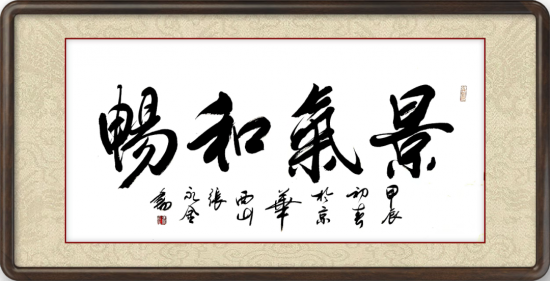 景氣和暢
甲辰
初春
於京
華
西山
張
永
書